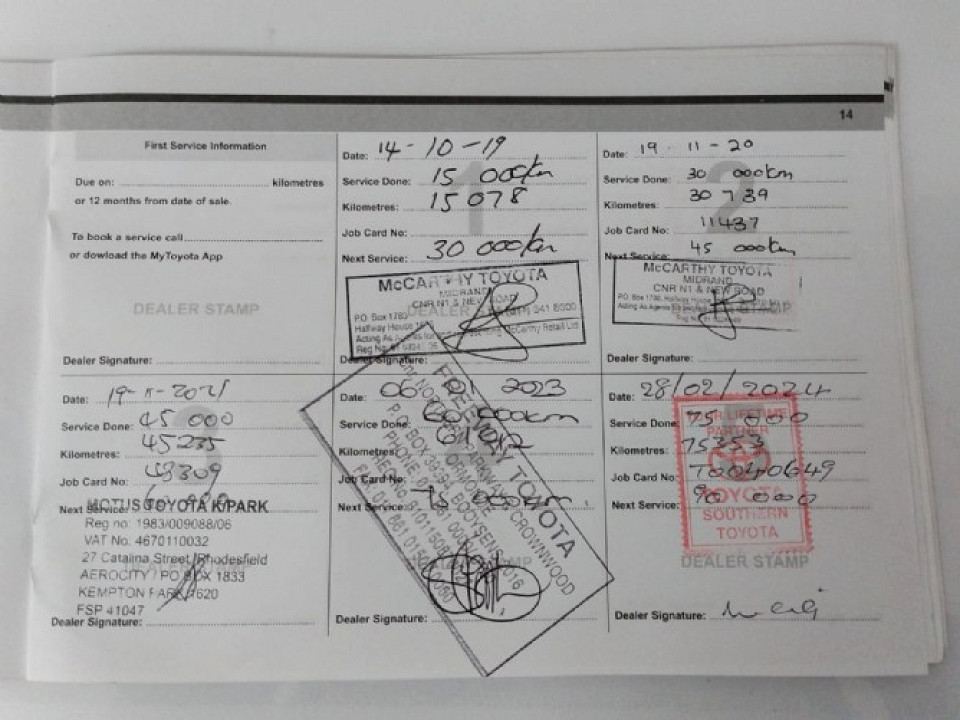 14
First Service Information
Due on: kilometres
or 12 months from date of sale.
To book a service call
or dowload the MyToyota App
DEALER STAMP
Dealer Signature:
1
Date: 14-10-19
Service Done: 15 000km
Kilometres: 15 078
Job Card No:
Next Service: 30 000km
McCARTHY TOYOTA
MIDRAND
CNR N1 & NEW ROAD
P.O. Box 1780
Halfway House
Acting As Agents for McCarthy Retail Ltd
Reg No.
DEALER STAMP
Dealer Signature:
2
Date: 19-11-20
Service Done: 30 000km
Kilometres: 30 739
Job Card No: 11437
Next Service: 45 000km
McCARTHY TOYOTA
MIDRAND
CNR N1 & NEW ROAD
P.O. Box 1780, Halfway House
Acting As Agents
Reg No
Dealer Signature:
Date: 19-11-2021
Service Done: 45 000
Kilometres: 45235
Job Card No: 49309
Next Service:
MOTUS TOYOTA K/PARK
Reg no: 1983/009088/06
VAT No. 4670110032
27 Catalina Street, Rhodesfield
AEROCITY / PO BOX 1833
KEMPTON PARK, 1620
FSP 41047
Dealer Signature:
Date: 2023
Service Done: 60 000km
Kilometres:
Job Card No:
Next Service: 75 000km
FREEWAY TOYOTA
CROWNWOOD
ORMONDE
P.O. BOX
BOOYSENS 2016
Dealer Signature:
Date: 28/02/2024
Service Done: 75 000
Kilometres: 75353
Job Card No: T0040649
Next Service: 90 000
YOUR LIFETIME
PARTNER
TOYOTA
SOUTHERN
TOYOTA
DEALER STAMP
Dealer Signature: